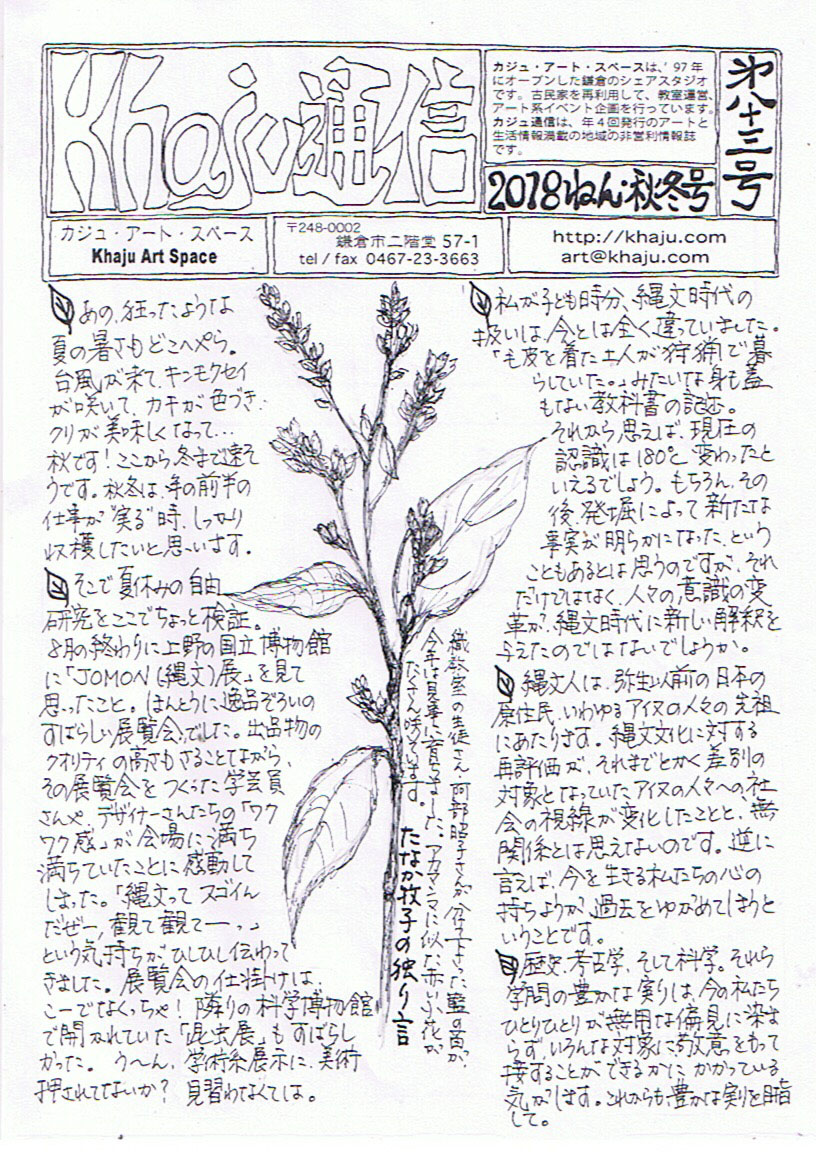 Khaju通信
カジュ・アート・スペースは、'97年
にオープンした鎌倉のシェアスタジオ
です。古民家を再利用して、教室運営、
アート系イベント企画を行っています。
カジュ通信は、年4回発行のアートと
生活情報満載の地域の非営利情報誌
です。
2018ねん・秋冬号
第八十三号
カジュ・アート・スペース
Khaju Art Space
〒248-0002
鎌倉市二階堂 57-1
tel / fax 0467-23-3663
http://khaju.com
art@khaju.com
あの、狂ったような
夏の暑さもどこへやら。
台風が来て、キンモクセイ
が咲いて、カキが色づき、
クリが美味しくなって…
秋です!ここから冬まで速そ
うです。秋冬は、年の前半の
仕事が"実る"時、しっかり
収穫したいと思います。
そこで夏休みの自由
研究をここでちょっと検証。
8月の終わりに上野の国立博物館
に「JOMON(縄文)展」を見て
思ったこと。ほんとうに逸品ぞろいの
すばらしい展覧会でした。出品物の
クオリティの高さもさることながら、
その展覧会をつくった学芸員
さんや、デザイナーさんたちの「ワク
ワク感」が会場に満ち
満ちていたことに感動して
しまった。「縄文ってスゴイん
だぜー,観て観てーっ」
という気持ちがひしひし伝わって
きました。展覧会の仕掛けは、
こーでなくっちゃ!隣りの科学博物館
で開かれていた「昆虫展」もすばらし
かった。う〜ん、学術系展示に、美術
押されてないか?見習わなくては。
織教室の生徒さん、阿部昭子さんが分けて下さった藍の苗が、
今年は見事に育ちました。アカマンマに似た赤い小花が
たくさん咲いています。
たなか牧子の独り言
私が子ども時分、縄文時代の
扱いは、今とは全く違っていました。
「毛皮を着た土人が狩猟で暮
らしていた。」みたいな身も蓋
もない教科書の記述。
それから思えば、現在の
認識は180°変わったと
いえるでしょう。もちろん、その
後、発掘によって新たな
事実が明らかになった、という
こともあるとは思うのですが、それ
だけではなく、人々の意識の変
革が、縄文時代に新しい解釈を
与えたのではないでしょうか。
縄文人は、弥生以前の日本の
原住民、いわゆるアイヌの人々の先祖
にあたります。縄文文化に対する
再評価が、それまでとかく差別の
対象となっていたアイヌの人々への社
会の視線が変化したことと、無
関係とは思えないのです。逆に
言えば、今を生きる私たちの心の
持ちようが、過去をゆがめてしまうと
いうことです。
歴史、考古学、そして科学。それら
学問の豊かな実りは、今の私たち
ひとりひとりが無用な偏見に染ま
らず、いろんな対象に敬意をもって
接することができるかに かかっている
気がします。これからも、豊かな実りを目指
して。